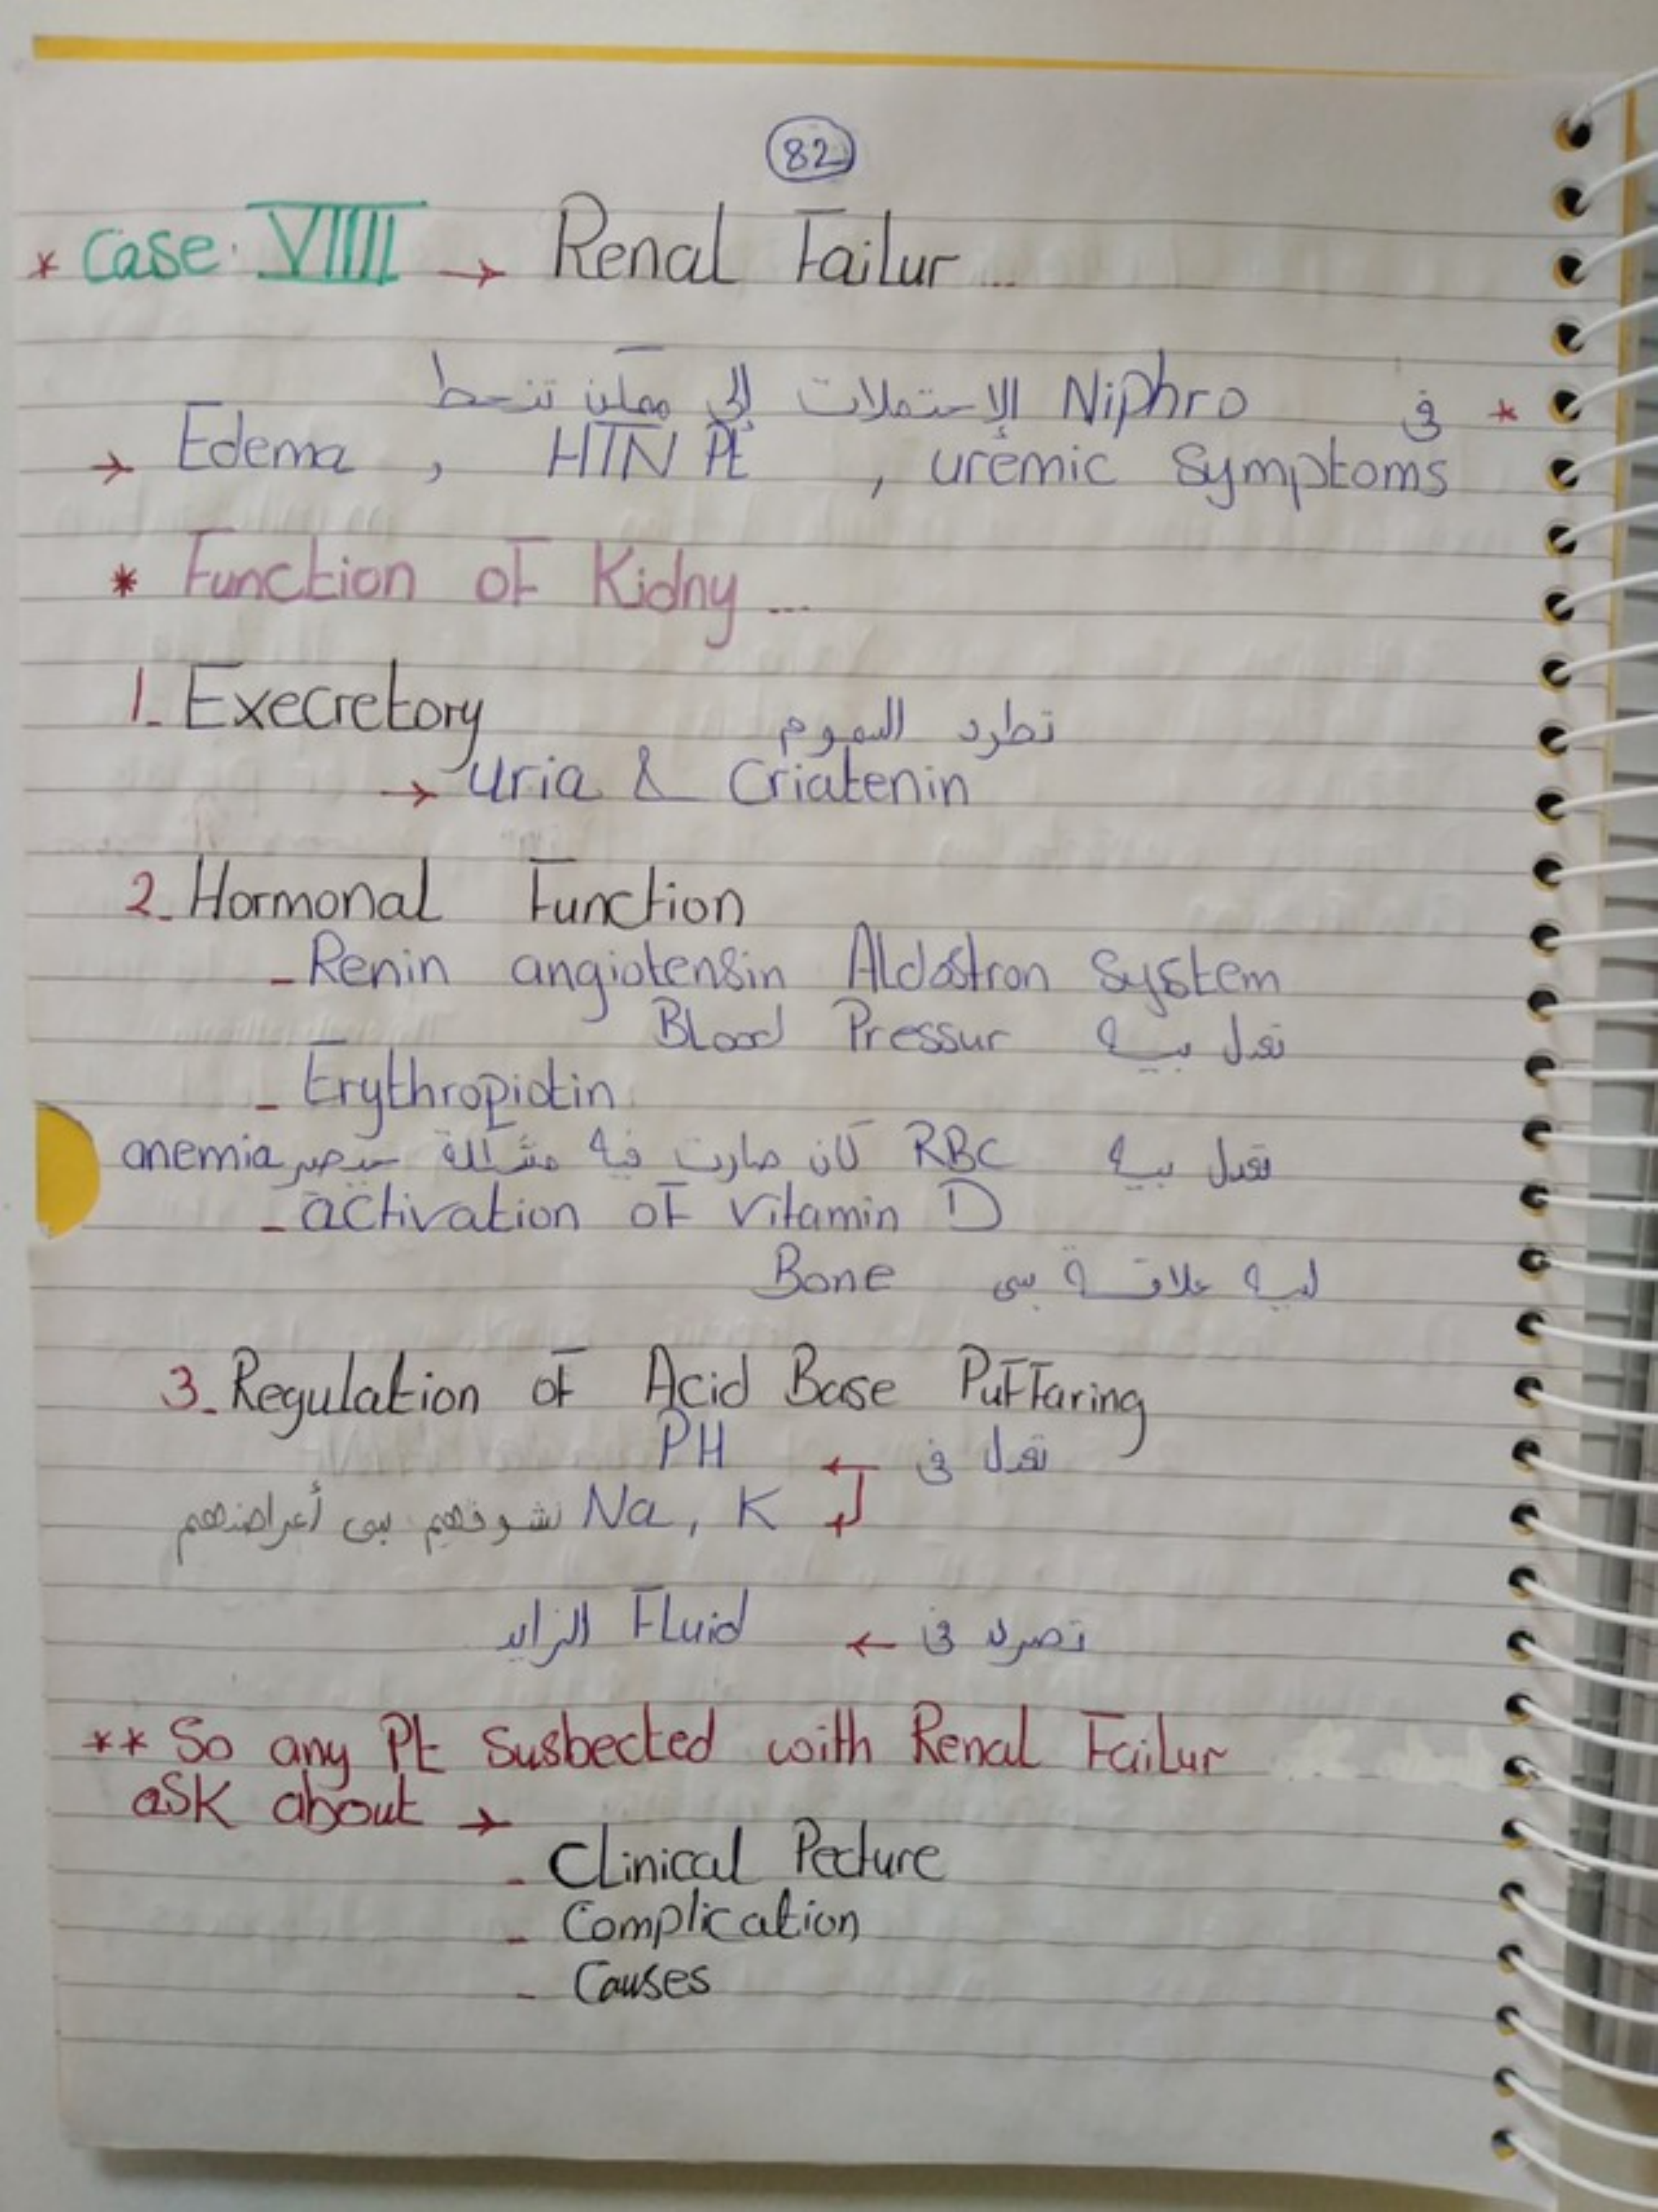 82
* Case VIIII → Renal Failur ...
* في Niphro الإحتملات إلي ممكن تنحط
→ Edema , HTN Pt , uremic symptoms
* Function of Kidny ...
1- Execretory
تطرد السموم
→ uria & Criatenin
2- Hormonal Function
- Renin angiotensin Aldostron system
تعدل بيه Blood Pressur
- Erythropiotin
تعدل بيه RBC كان صارت فيه مشكلة حيصير anemia
- activation of vitamin D
ليه علاقة بى Bone
3- Regulation of Acid Base Puffaring
تعدل في ← PH
Na, K نشوفهم بى أعراضهم
تصرف في ← Fluid الزايد
** So any Pt Susbected with Renal Failur
ask about →
- Clinical Pecture
- Complication
- Causes